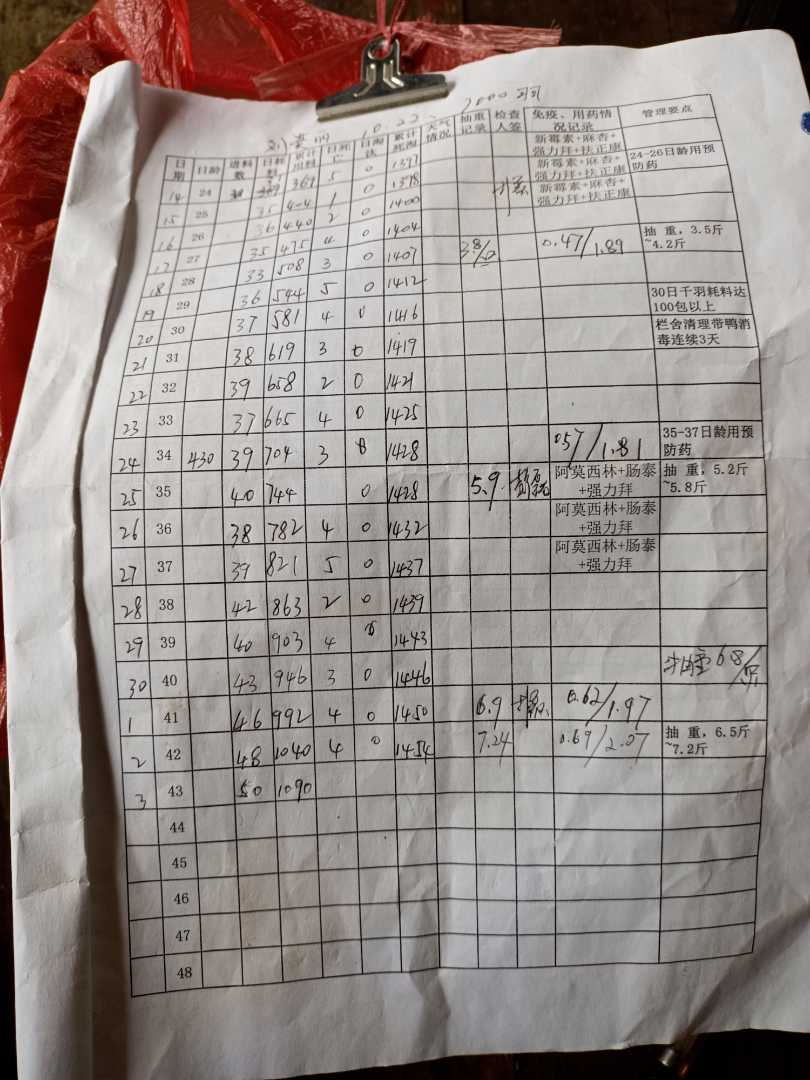 10.22 7000羽
日期 日龄 进料数 日耗料 累计用料 日死亡 日淘汰 累计死淘 天气情况 抽重记录 检查人签 免疫、用药情况记录 管理要点
14 24 369 5 0 1397 新霉素+麻杏+强力拜+扶正康 24-26日龄用预防药
15 25 35 404 1 0 1398 新霉素+麻杏+强力拜+扶正康
16 26 36 440 2 0 1400 新霉素+麻杏+强力拜+扶正康
17 27 35 475 4 0 1404
18 28 33 508 3 0 1407 3.8/ 0.47/1.89 抽 重,3.5斤~4.2斤
19 29 36 544 5 0 1412
20 30 37 581 4 0 1416 30日千羽耗料达100包以上
21 31 38 619 3 0 1419 栏舍清理带鸭消毒连续3天
22 32 39 658 2 0 1421
23 33 37 665 4 0 1425
24 34 430 39 704 3 0 1428 0.57/1.81 35-37日龄用预防药
25 35 40 744 0 1428 5.9 阿莫西林+肠泰+强力拜 抽 重,5.2斤~5.8斤
26 36 38 782 4 0 1432 阿莫西林+肠泰+强力拜
27 37 39 821 5 0 1437 阿莫西林+肠泰+强力拜
28 38 42 863 2 0 1439
29 39 40 903 4 0 1443
30 40 43 946 3 0 1446 抽重6.8/
1 41 46 992 4 0 1450 6.9 0.62/1.97
2 42 48 1040 4 0 1454 7.24 0.69/2.07 抽 重,6.5斤~7.2斤
3 43 50 1090
44
45
46
47
48